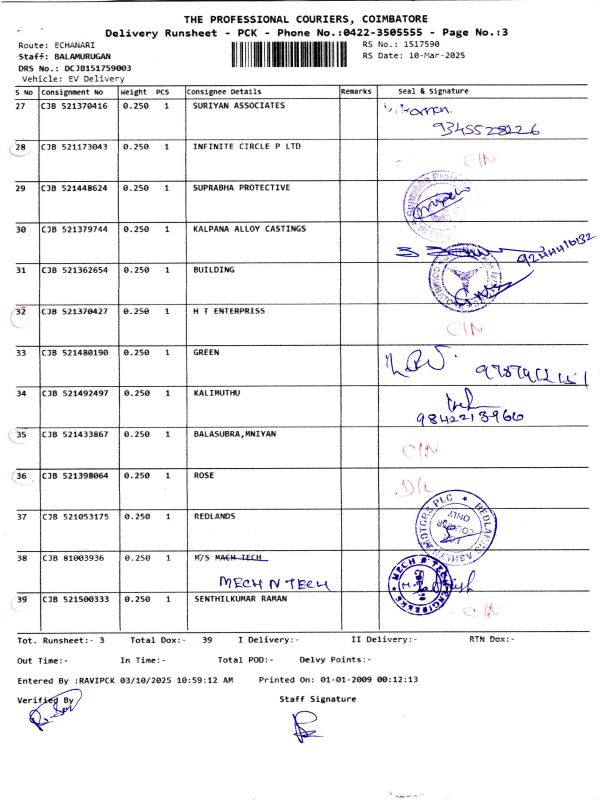 THE PROFESSIONAL COURIERS, COIMBATORE
Delivery Runsheet - PCK - Phone No.:0422-3505555 - Page No.:3
Route: ECHANARI RS No.: 1517590
Staff: BALAMURUGAN RS Date: 10-Mar-2025
DRS No.: DCJB151759003
Vehicle: EV Delivery
S No Consignment No Weight PCS Consignee Details Remarks Seal & Signature
27 CJB 521370416 0.250 1 SURIYAN ASSOCIATES
9345528226
28 CJB 521173043 0.250 1 INFINITE CIRCLE P LTD C/N
29 CJB 521448624 0.250 1 SUPRABHA PROTECTIVE
30 CJB 521379744 0.250 1 KALPANA ALLOY CASTINGS
9244416132
31 CJB 521362654 0.250 1 BUILDING
32 CJB 521370427 0.250 1 H T ENTERPRISS C/N
33 CJB 521480190 0.250 1 GREEN
34 CJB 521492497 0.250 1 KALIMUTHU
9842213966
35 CJB 521433867 0.250 1 BALASUBRA,MNIYAN C/N
36 CJB 521398064 0.250 1 ROSE D/L
37 CJB 521053175 0.250 1 REDLANDS
REDLANDS ASHLYN MOTORS PLC
ONLY
38 CJB 81003936 0.250 1 M/S MACH TECH
MECH N TECH
MECH N TECH
39 CJB 521500333 0.250 1 SENTHILKUMAR RAMAN C/N
Tot. Runsheet:- 3 Total Dox:- 39 I Delivery:- II Delivery:- RTN Dox:-
Out Time:- In Time:- Total POD:- Delvy Points:-
Entered By :RAVIPCK 03/10/2025 10:59:12 AM Printed On: 01-01-2009 00:12:13
Verified By Staff Signature